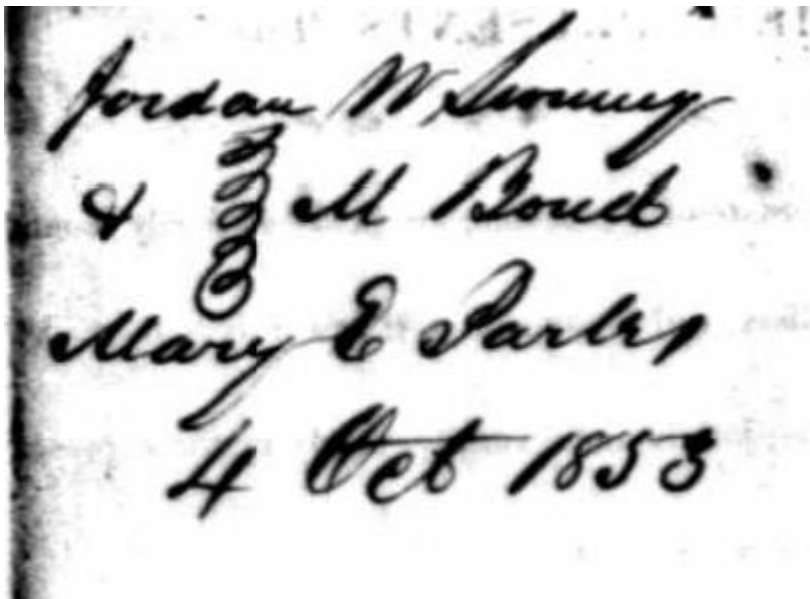 Jordan W Swinney
& M Bond
Mary E Parks
4 Oct 1853